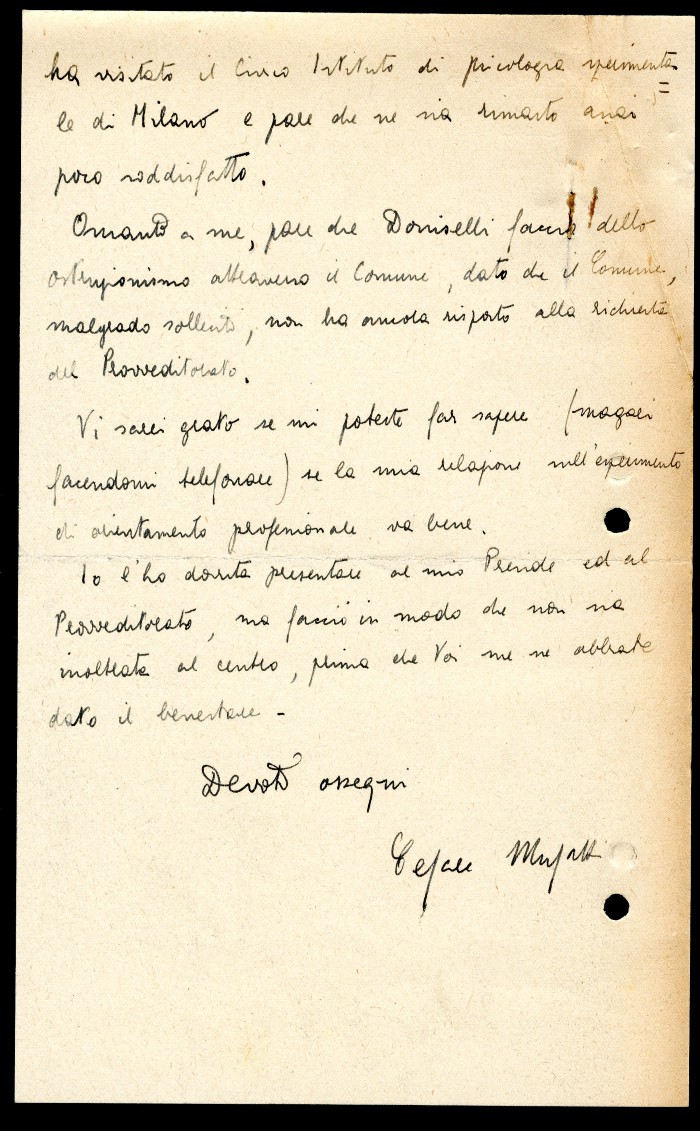 ha visitato il Civico Istituto di psicologia sperimenta=
le di Milano e pare che ne sia rimasto assai
poco soddisfatto.
Quanto a me, pare che Doniselli faccia dello
ostruzionismo attraverso il Comune, dato che il Comune,
malgrado solleciti, non ha ancora risposto alla richiesta
del Provveditorato.
Vi sarei grato se mi poteste far sapere (magari
facendomi telefonare) se la mia relazione sull'esperimento
di orientamento professionale va bene.
Io l'ho dovuta presentare al mio Preside ed al
Provveditorato, ma faccio in modo che non sia
inoltrata al centro, prima che Voi me ne abbiate
dato il benestare -
Devoti ossequi
Cesare Musatti